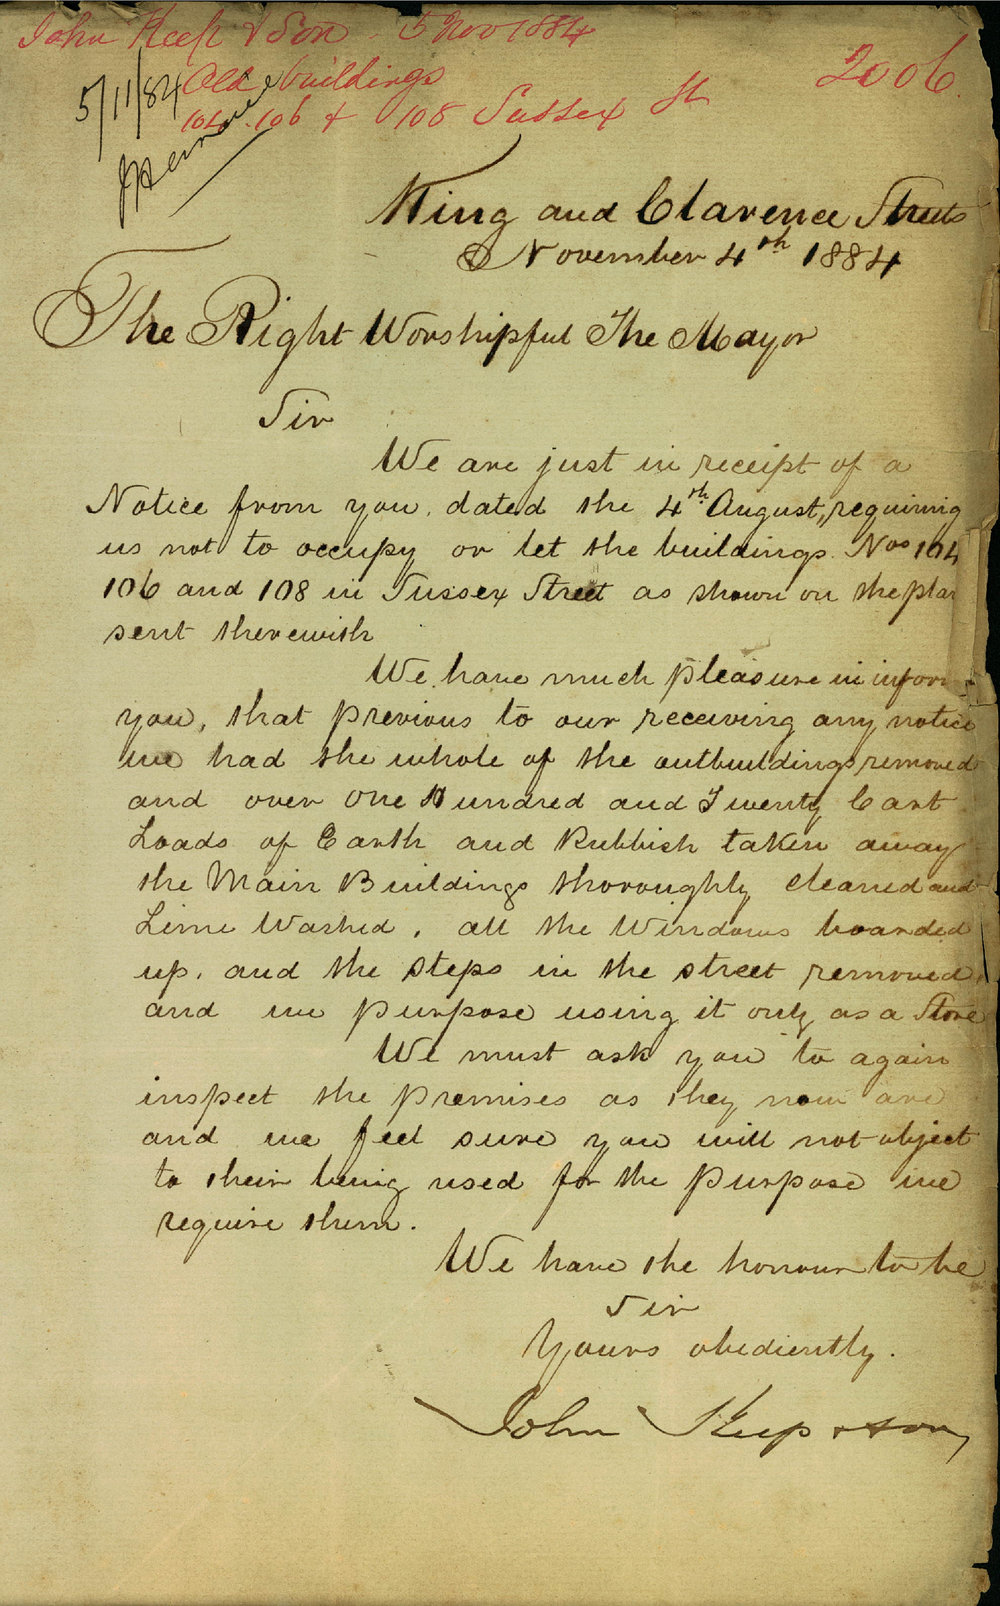 John Keep & Son - 5 Nov 1884
Old buildings
104. 106 & 108 Sussex St
2006
5/11/84
King and Clarence Streets
November 4th 1884
The Right Worshipful The Mayor
Sir
We are just in receipt of a
Notice from you, dated the 4th August, requiring
us not to occupy or let the buildings Nos 104
106 and 108 in Sussex Street as shown on the plan
sent therewith
We have much pleasure in inform
you, that previous to our receiving any notice
we had the whole of the outbuildings removed
and over One Hundred and Twenty Cart
Loads of Earth and Rubbish taken away
the Main Buildings thoroughly cleaned and
Lime Washed, all the Windows boarded
up, and the steps in the street removed,
and we purpose using it only as a Store
We must ask you to again
inspect the premises as they now are
and we feel sure you will not object
to their being used for the purpose we
require them.
We have the honour to be
Sir
Yours obediently.
John Keep & Son